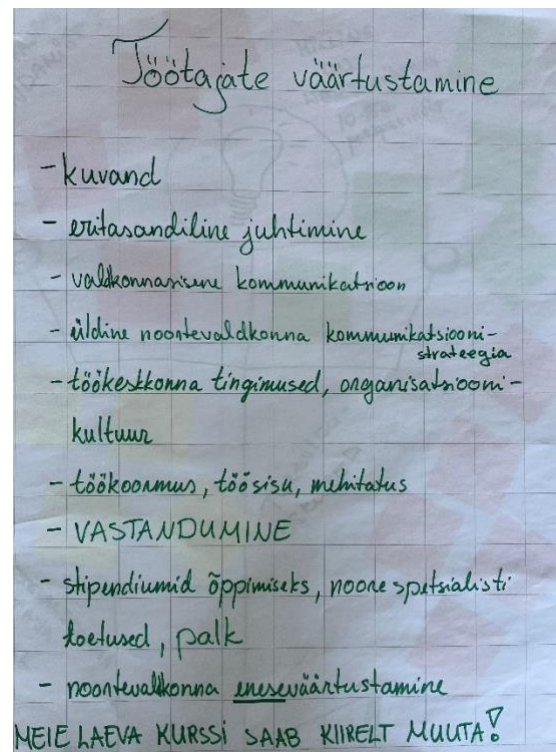 Töötajate väärtustamine
- kuvand
- eritasandiline juhtimine
- valdkonnasisene kommunikatsioon
- üldine noortevaldkonna kommunikatsiooni-
strateegia
- töökeskkonna tingimused, organisatsiooni-
kultuur
- töökoormus, töösisu, mehitatus
- VASTANDUMINE
- stipendiumid õppimiseks, noore spetsialisti
toetused, palk
- noortevaldkonna eneseväärtustamine
MEIE LAEVA KURSSI SAAB KIIRELT MUUTA!